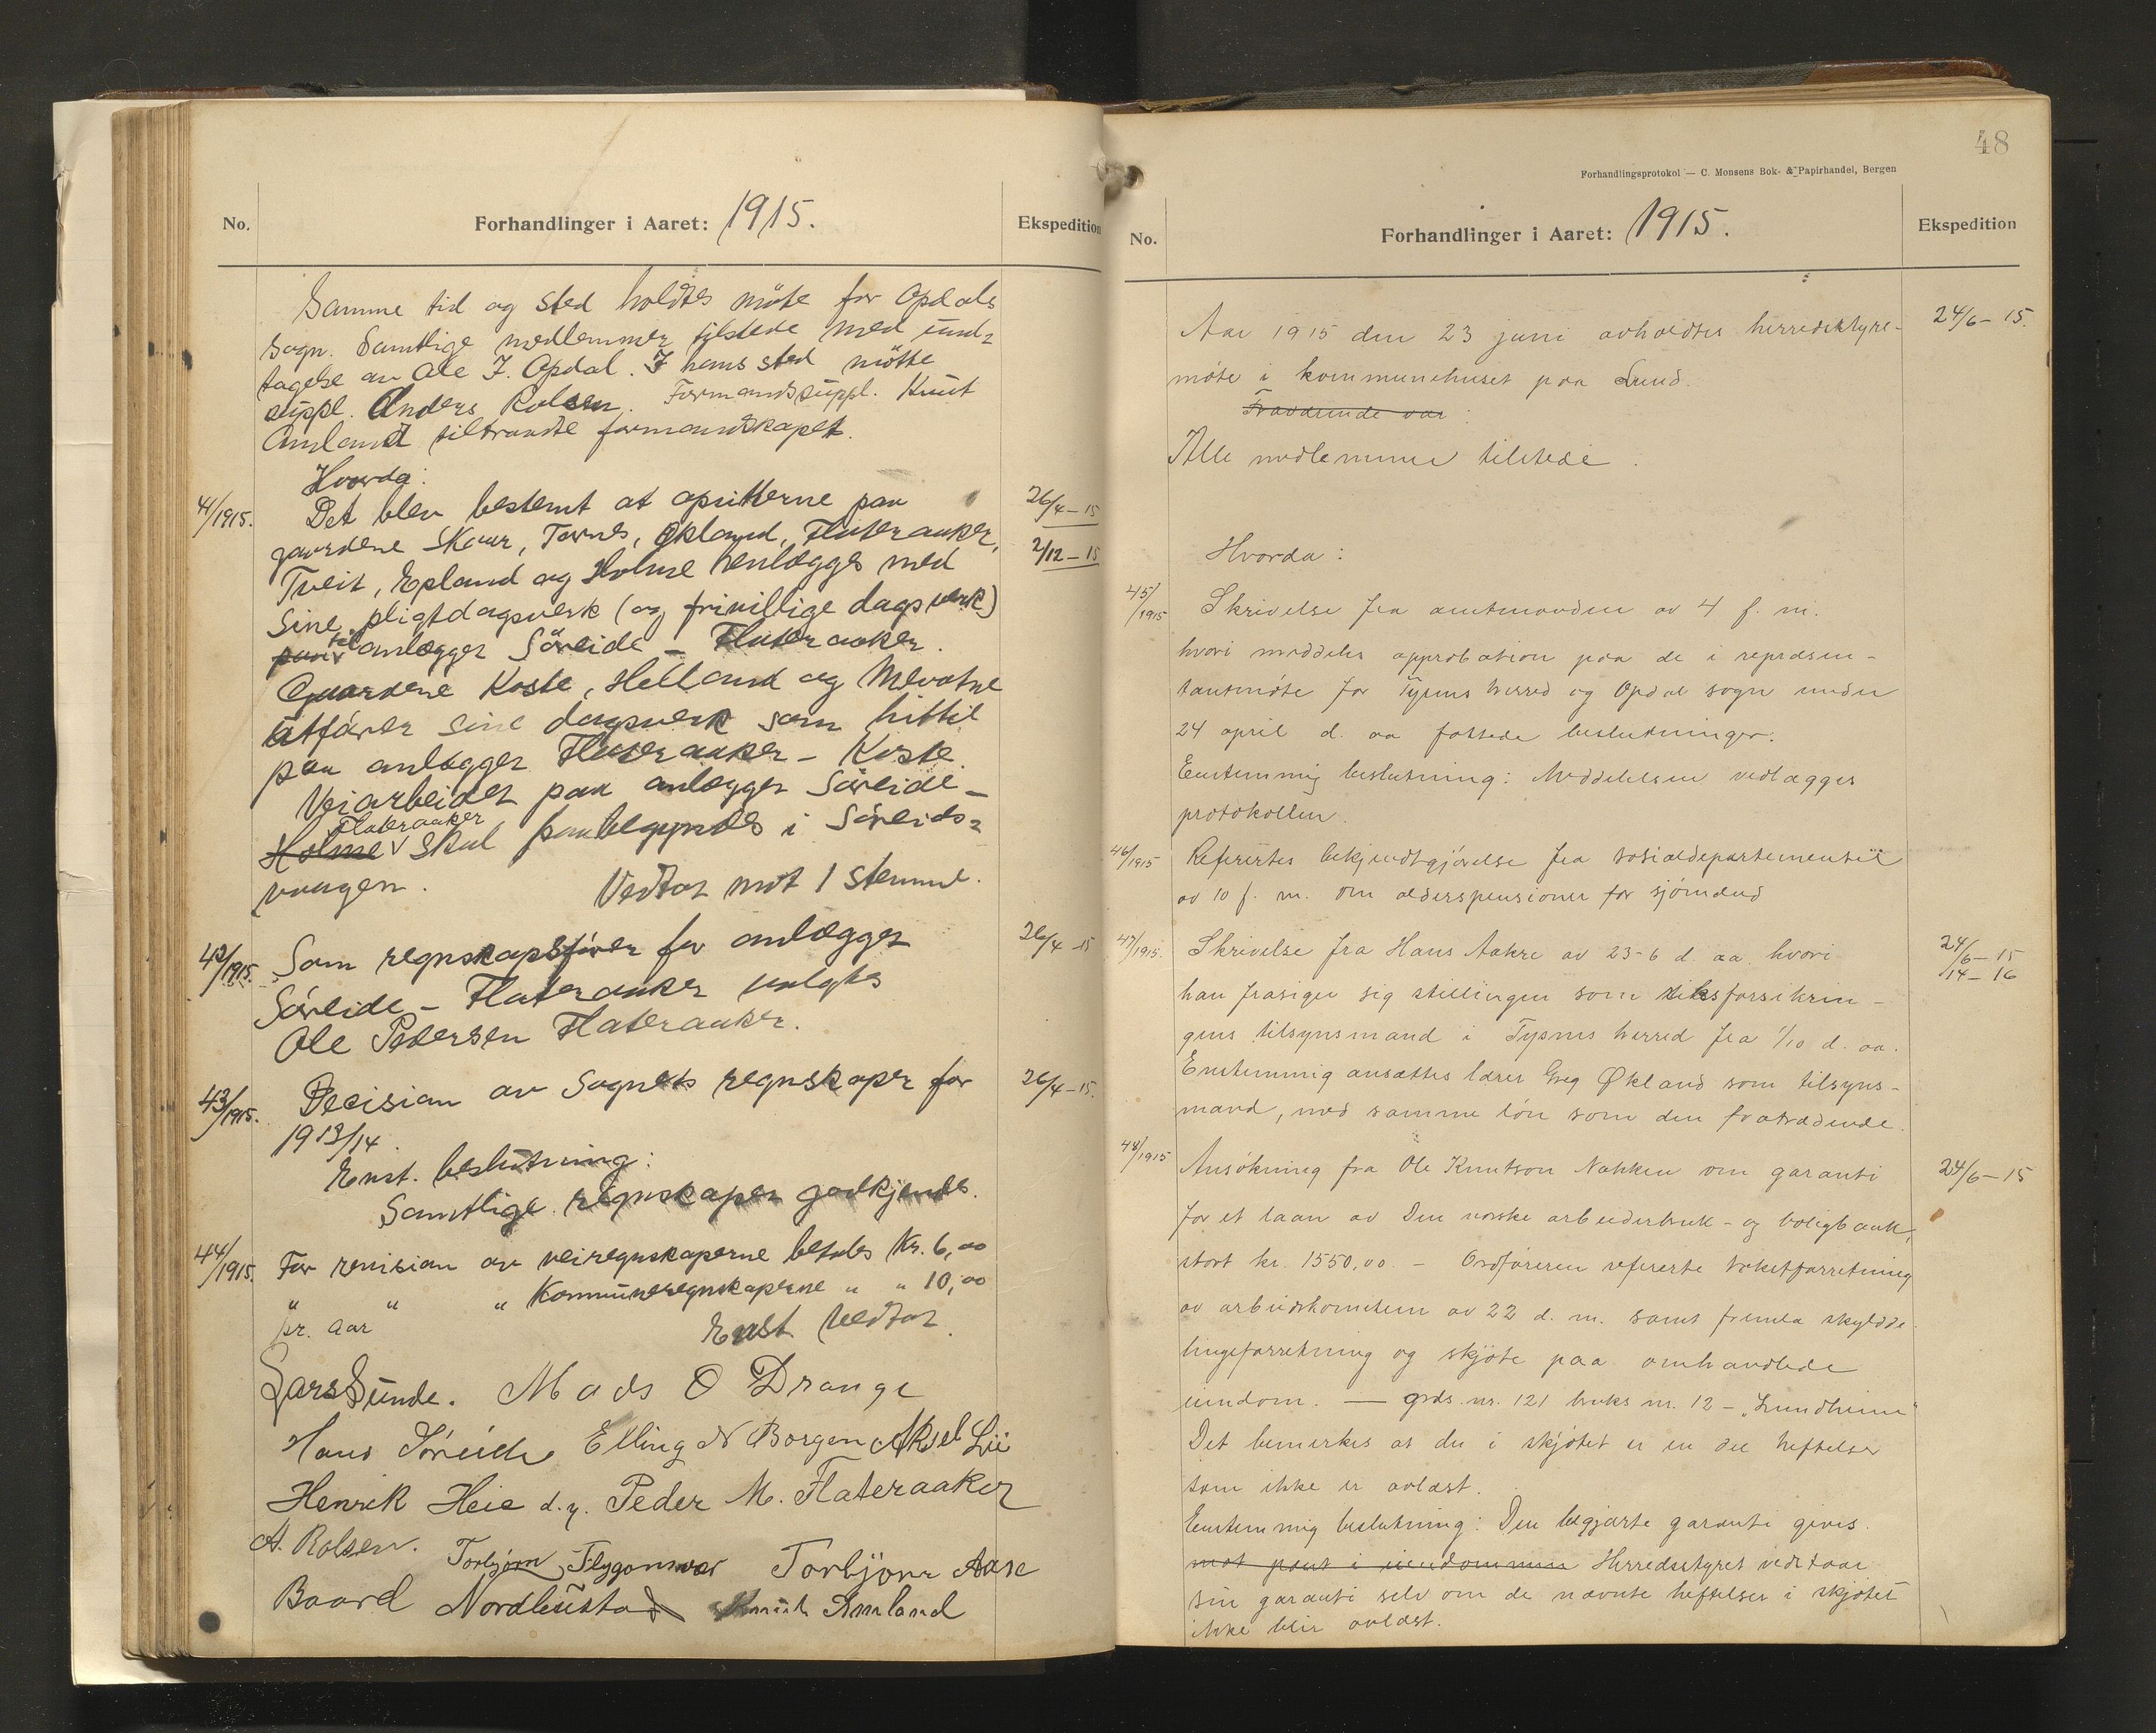 No.
Forhandlinger i Aaret: 1915.
Ekspedition
Samme tid og sted holdtes möte for Opdals
sogn. Samtlige medlemmer tilstede med und-
tagelse av Ole J. Opdal. I hans sted mötte
suppl. Anders Rolsen. Formandssuppl. Knut
Amland tiltraadte formandskapet.
Hvorda:
41/1915. Det blev bestemt at opsitterne paa 26/4-15
gaardene Skaar, Tornes, Økland, Flateraaker, 2/12-15
Tveit, Epland og Holme henlægges med
sine pligtdagsverk (og frivillige dagsverk)
paa til anlægget Söreide - Flateraaker.
Gaardene Koste, Helland og Mevatne
utförer sine dagsverk som hittil
paa anlægget Flateraaker - Koste.
Veiarbeidet paa anlægget Söreide -
Flateraaker
Holme skal paabegyndes i Söreids-
vaagen.
Vedtat mot 1 stemme.
42/1915. Som regnskapsförer for anlægget 26/4-15
Söreide - Flateraaker valgtes
Ole Pedersen Flateraaker.
43/1915. Decision av Sognets regnskaper for 26/4-15.
1913/14.
Enst. beslutning:
Samtlige regnskaper godkjendes.
44/1915. For revision av veiregnskaperne betales Kr. 6,00
" " " Kommuneregnskaperne " " 10,00
pr. aar
Enst. vedtat.
Lars Sunde. Mads O Drange
Hans Söreide Elling N Borgen Aksel Lie
Henrik Heie d.y. Peder M. Flateraaker
A. Rolsen. Torbjörn Flygansvær Torbjörn Aase
Baard Nordhustad Knut Amland
48
Forhandlingsprotokol — C. Monsens Bok- & Papirhandel, Bergen
No.
Forhandlinger i Aaret: 1915.
Ekspedition
Aar 1915 den 23 juni avholdtes herredsstyre- 24/6-15.
möte i kommunehuset paa Lund.
Fraværende var:
Alle medlemmer tilstede.
Hvorda:
45/1915 Skrivelse fra amtmanden av 4 f. m.
hvori meddeles approbation paa de i repræsen-
tantmöte for Tysnes herred og Opdal sogn under
24 april d. aa fattede beslutninger.
Enstemmig beslutning: Meddelelsen vedlægges
protokollen.
46/1915 Refertes bekjendtgjörelse fra socialdepartementet
av 10 f. m. om alderspensioner for sjömænd
47/1915. Skrivelse fra Hans Aakre av 23-6 d. aa. hvori 24/6-15
han frasiger sig stillingen som riksforsikrin- 14-16
gens tilsynsmand i Tysnes herred fra 1/10 d. aa.
Enstemmig ansættes lærer Greg Økland som tilsyns-
mand, med samme lön som den fratrædende.
48/1915 Ansökning fra Ole Knutson Nakken om garanti 24/6-15
for et laan av Den norske arbeiderbruk- og boligbank,
stort kr. 1550,00. - Ordföreren refererte takstforretning
av arbeidskomiteen av 22 d. m. samt fremla skyldde-
lingsforretning og skjöte paa omhandlede
eiendom. — grds. nr. 121 bruks nr. 12 - "Lundheim"
Det bemerkes at der i skjötet er en del heftelser
som ikke er avlæst.
Enstemmig beslutning: Den begjærte garanti gives.
mot pant i eiendommen Herredsstyret vedtaar
sin garanti selv om de nævnte heftelser i skjötet
ikke blir avlæst.